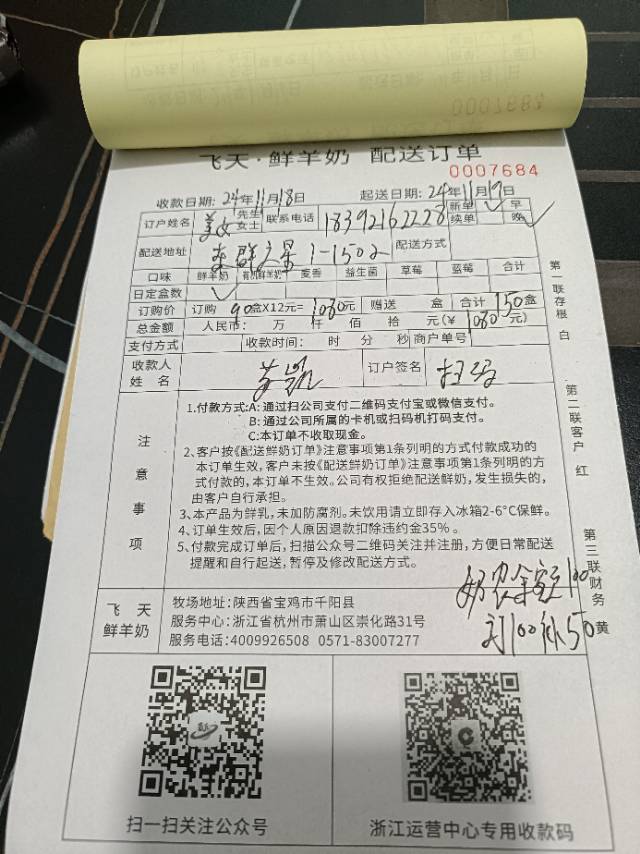 飞天·鲜羊奶 配送订单
0007684
收款日期: 24年11月18日 起送日期: 24年11月19日
订户姓名 先生 女士 联系电话 18392162228 新单 续单 早 晚
配送地址 1-1502 配送方式
口味 鲜羊奶 有机鲜羊奶 麦香 益生菌 草莓 蓝莓 合计
日定盒数
订购价 订购 90盒X12元=1080元 赠送 盒 合计 150盒
总金额 人民币: 万 仟 佰 拾 元(¥ 1080元)
支付方式 收款时间: 时 分 秒 商户单号
收款人姓名 订户签名
注意事项
1.付款方式:A: 通过扫公司支付二维码支付宝或微信支付。
B: 通过公司所属的卡机或扫码机打码支付。
C:本订单不收取现金。
2、客户按《配送鲜奶订单》注意事项第1条列明的方式付款成功的
本订单生效,客户未按《配送鲜奶订单》注意事项第1条列明的方
式付款的,本订单不生效。公司有权拒绝配送鲜奶,发生损失的,
由客户自行承担。
3、本产品为鲜乳,未加防腐剂。未饮用请立即存入冰箱2-6°C保鲜。
4、订单生效后,因个人原因退款扣除违约金35%。
5、付款完成订单后,扫描公众号二维码关注并注册,方便日常配送
提醒和自行起送,暂停及修改配送方式。
第一联存根 白
第二联客户 红
第三联财务 黄
飞天
鲜羊奶
牧场地址:陕西省宝鸡市千阳县
服务中心:浙江省杭州市萧山区崇化路31号
服务电话:4009926508 0571-83007277
扫一扫关注公众号
浙江运营中心专用收款码